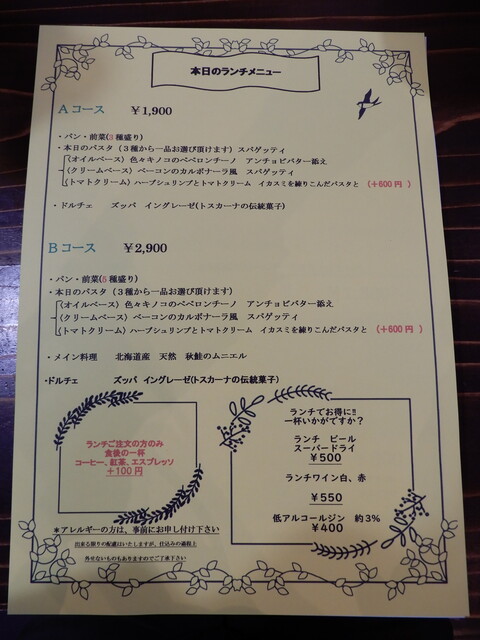 本日のランチメニュー
Aコース ￥1,900
・パン・前菜(3種盛り)
・本日のパスタ（３種から一品お選び頂けます）スパゲッティ
（オイルベース）色々キノコのペペロンチーノ アンチョビバター添え
（クリームベース）ベーコンのカルボナーラ風 スパゲッティ
（トマトクリーム）ハーブシュリンプとトマトクリーム イカスミを練りこんだパスタと （＋600円）
・ドルチェ ズッパ イングレーゼ(トスカーナの伝統菓子)
Bコース ￥2,900
・パン・前菜(5種盛り)
・本日のパスタ（３種から一品お選び頂けます）
（オイルベース）色々キノコのペペロンチーノ アンチョビバター添え
（クリームベース）ベーコンのカルボナーラ風 スパゲッティ
（トマトクリーム）ハーブシュリンプとトマトクリーム イカスミを練りこんだパスタと （＋600円）
・メイン料理 北海道産 天然 秋鮭のムニエル
・ドルチェ ズッパ イングレーゼ(トスカーナの伝統菓子)
ランチご注文の方のみ
食後の一杯
コーヒー、紅茶、エスプレッソ
＋100円
＊アレルギーの方は、事前にお申し付け下さい
出来る限りの配慮はいたしますが、仕込みの過程上
外せないものもありますのでご了承下さい
ランチでお得に!!
一杯いかがですか？
ランチ ビール
スーパードライ
￥500
ランチワイン白、赤
￥550
低アルコールジン 約3%
￥400